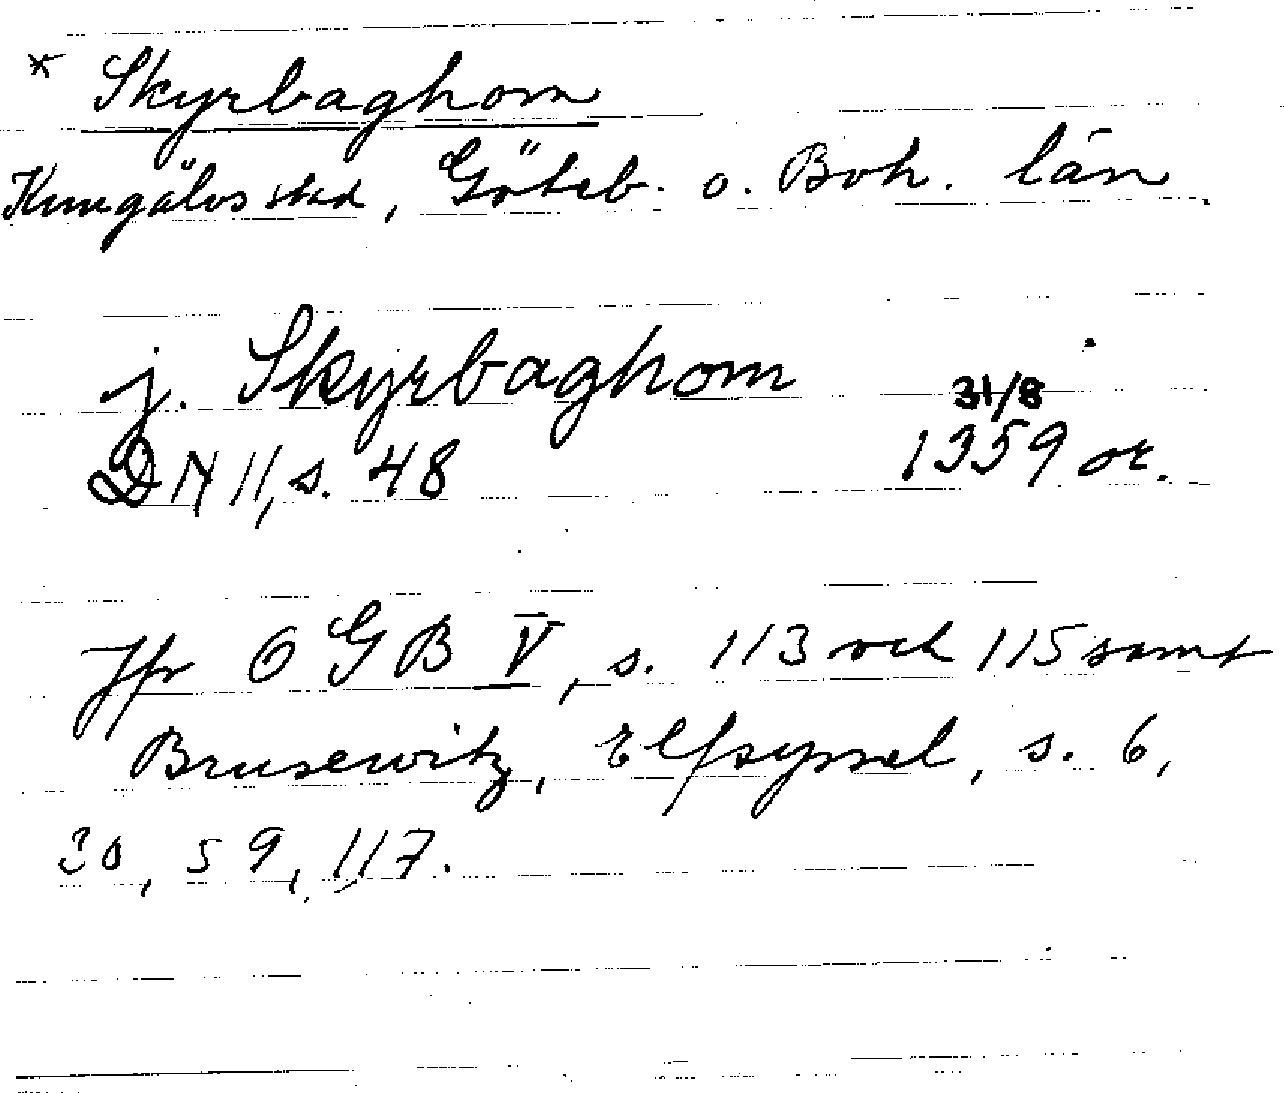 * Skyrbaghom
Kungälvs stad, Göteb. o. Boh. län.
j. Skyrbaghom 31/8
DN II, s. 48 1359 or.
Jfr OGB V, s. 113 och 115 samt
Brusewitz, Elfsyssel, s. 6,
30, 59, 117.